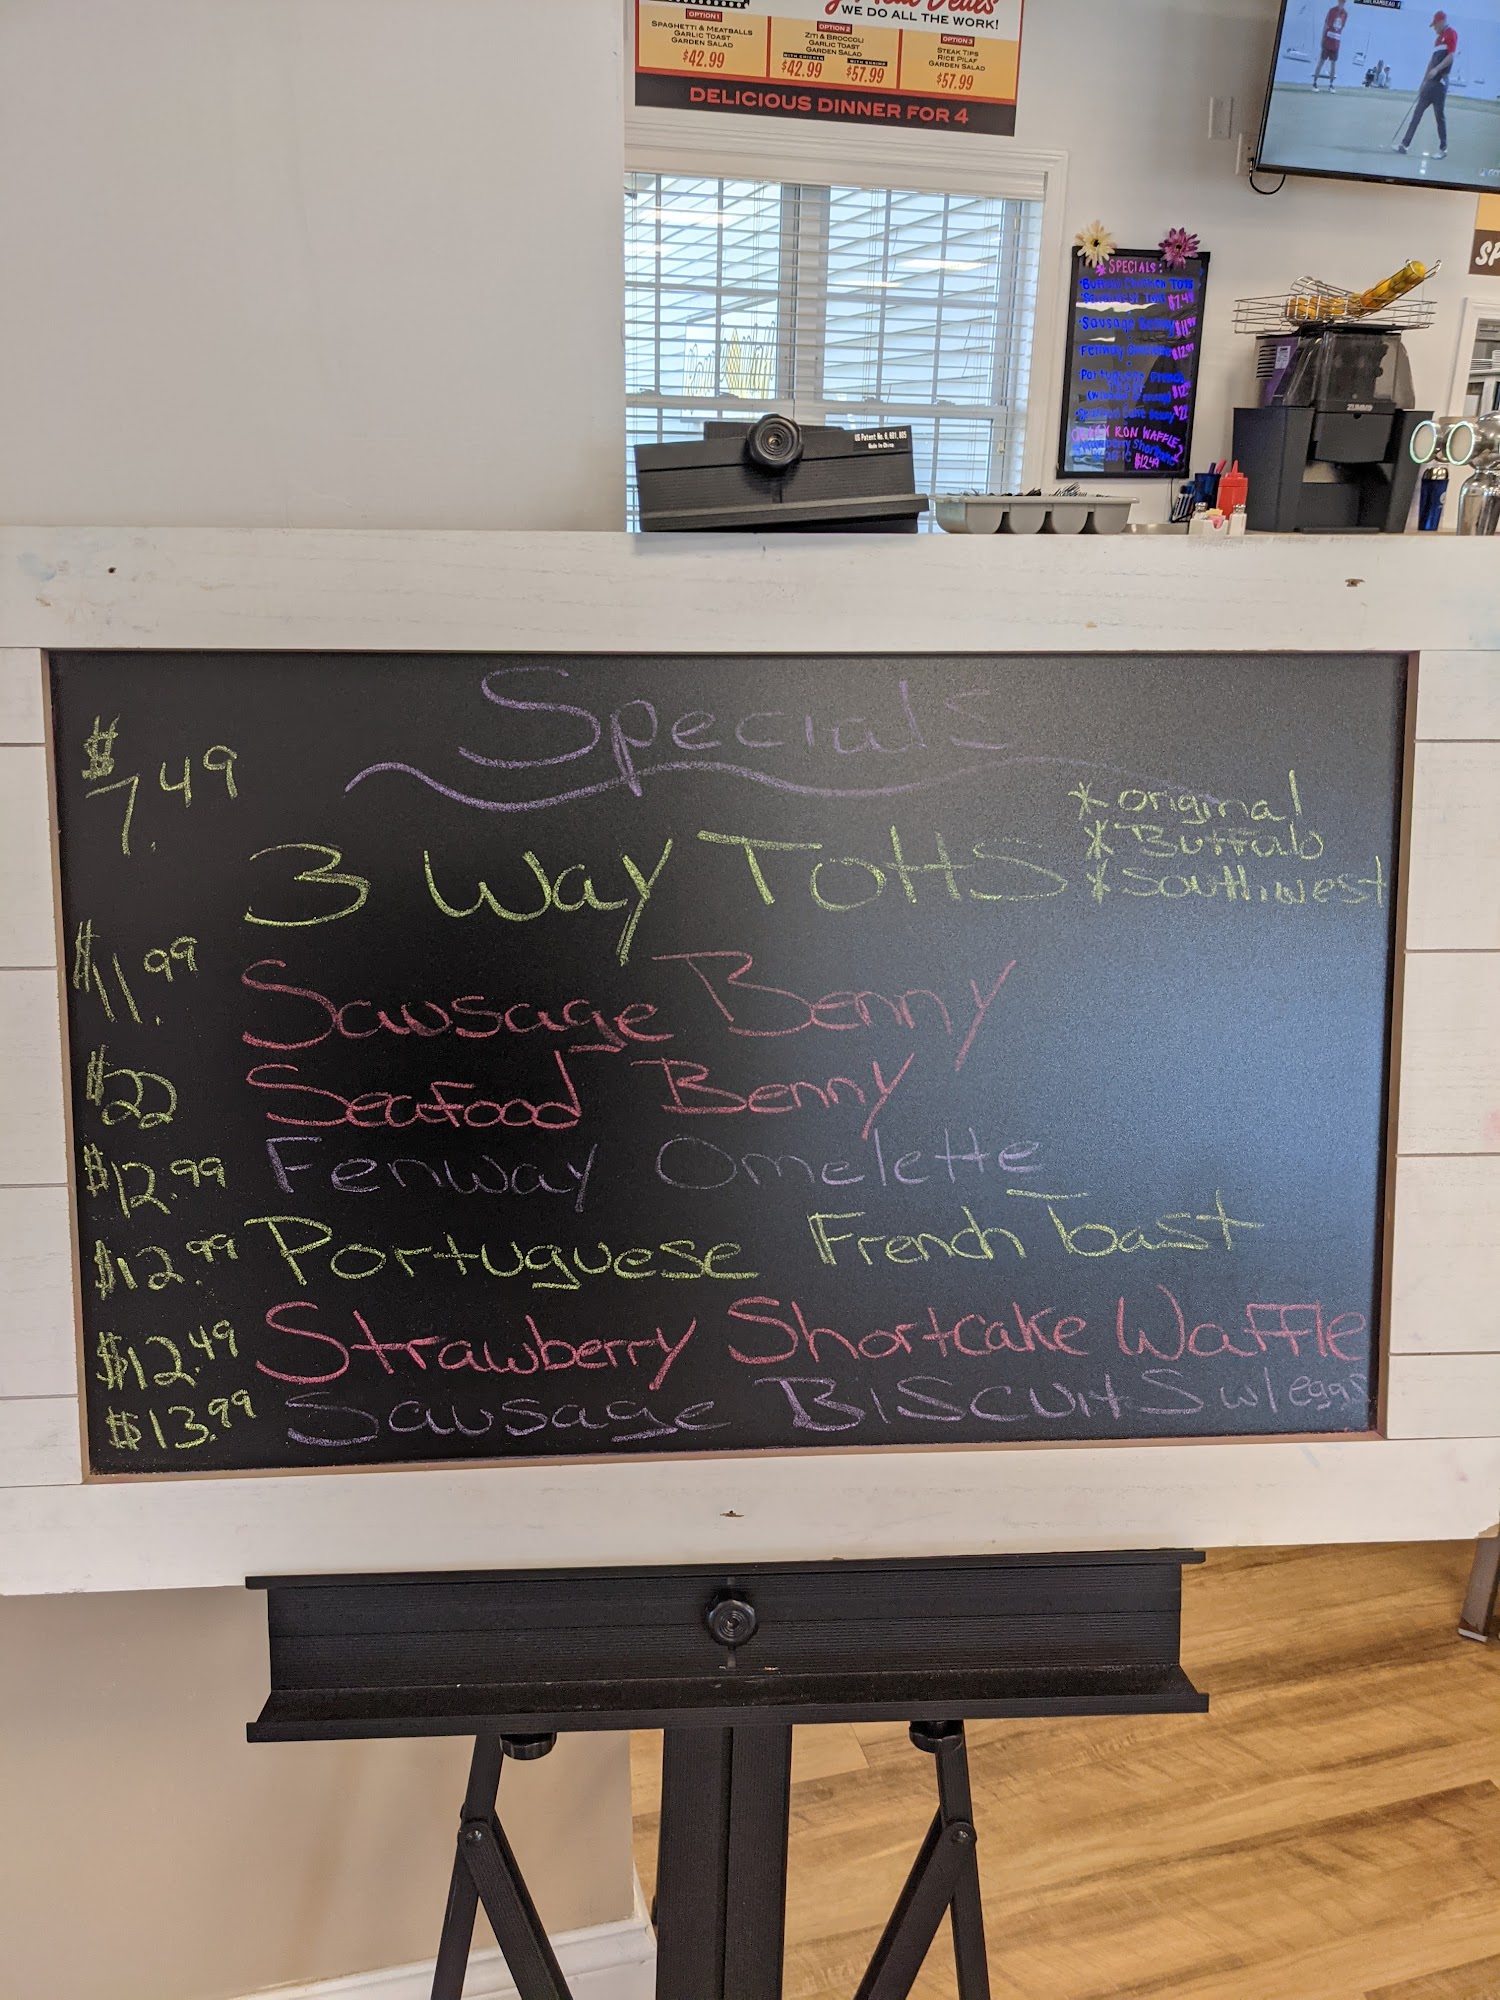 WE DO ALL THE WORK!
OPTION 1
SPAGHETTI & MEATBALLS
GARLIC TOAST
GARDEN SALAD
$42.99
OPTION 2
ZITI & BROCCOLI
GARLIC TOAST
GARDEN SALAD
WITH CHICKEN WITH SHRIMP
$42.99 $57.99
OPTION 3
STEAK TIPS
RICE PILAF
GARDEN SALAD
$57.99
DELICIOUS DINNER FOR 4
* SPECIALS:
Tots
$7.49
Sausage Benny
Fenway $12.99
Portuguese French
$22
IRON WAFFLE
Strawberry Shortcake
$12.49
US Patent No. 6,601,805
Made in China
SP
Specials
$7.49 3 Way TottS
* original
* Buffalo
* Southwest
$11.99 Sausage Benny
$22 Seafood Benny
$12.99 Fenway Omelette
$12.99 Portuguese French Toast
$12.49 Strawberry Shortcake Waffle
$13.99 Sausage BiScuitS w/eggs